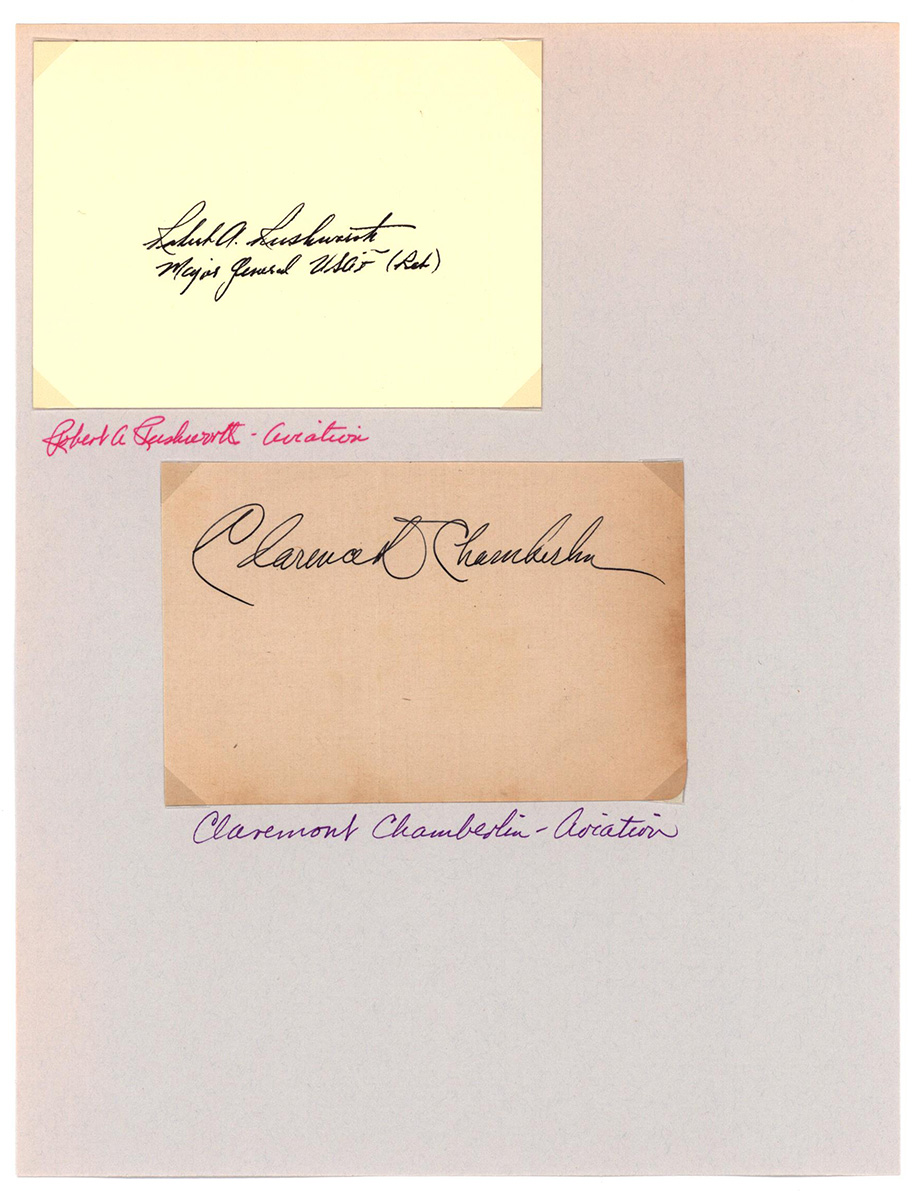 Robert A. Rushworth
Major General USAF (Ret)
Robert A Rushworth - Aviation
Clarence D Chamberlin
Claremont Chamberlin - Aviation